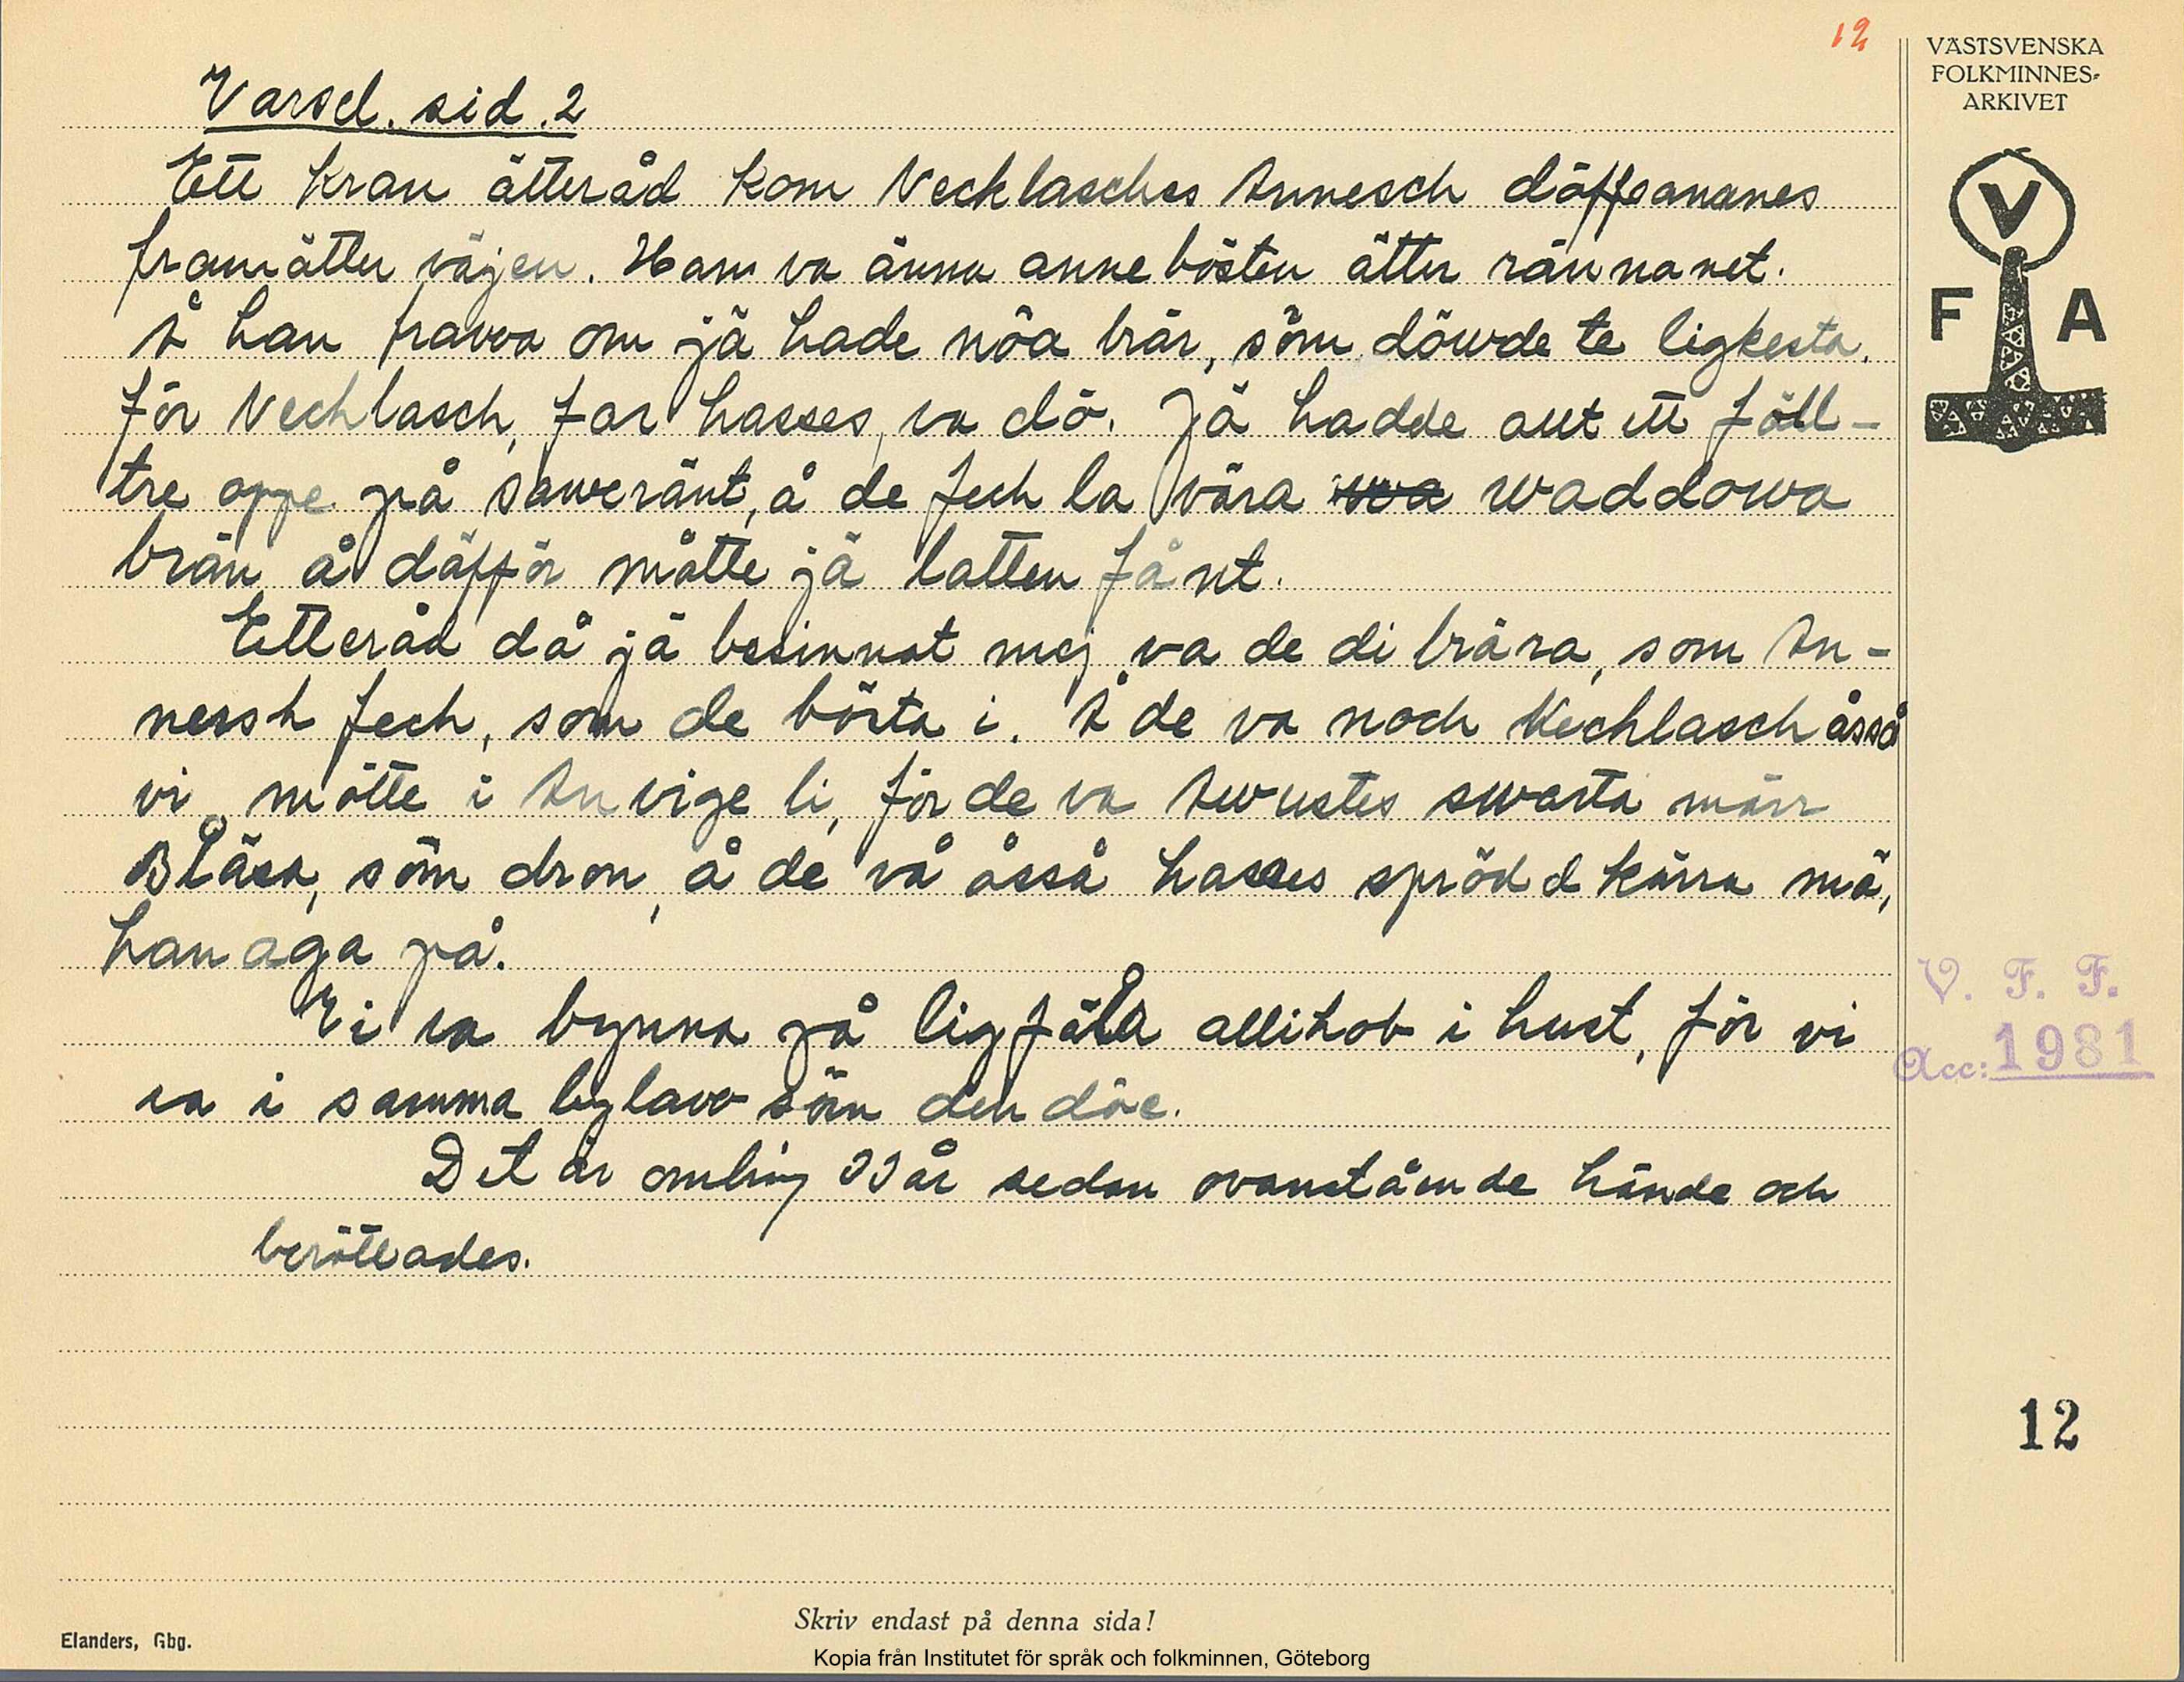 12
VÄSTSVENSKA
FOLKMINNES-
ARKIVET
V
F A
Varsel. sid. 2
Ett kran ätteråd kom Necklasches Annesch döffsananes
framätter väjen. Ham va änna anne bösten ätter rännanet.
Å han fravva om jä hade nöa brär, söm döwde te ligkesta.
för Nechlasch, far hasses, va dö. Jä hadde aut ett föll-
tre oppe på saweränt, å de fech la våra waddowa
brän å däfför måtte jä latten fånt.
Etteråd då jä besinnat mej va de di brära, som An-
nersh fech, som de börta i. Å de va noch Nechlasch åsså
vi mötte i Anvige li, för de va Awustes swarta märr
Bläsa, söm dron, å de vå åsså hasses sprödd kärra mä,
han aga på.
Vi va bynna på ligfäla allihob i hust, för vi
va i samma bylavv söm den döe.
Det är omkring 35 år sedan ovanstående hände och
berättades.
V. F. F.
Acc: 1981
12
Skriv endast på denna sida!
Elanders, Gbg.
Kopia från Institutet för språk och folkminnen, Göteborg